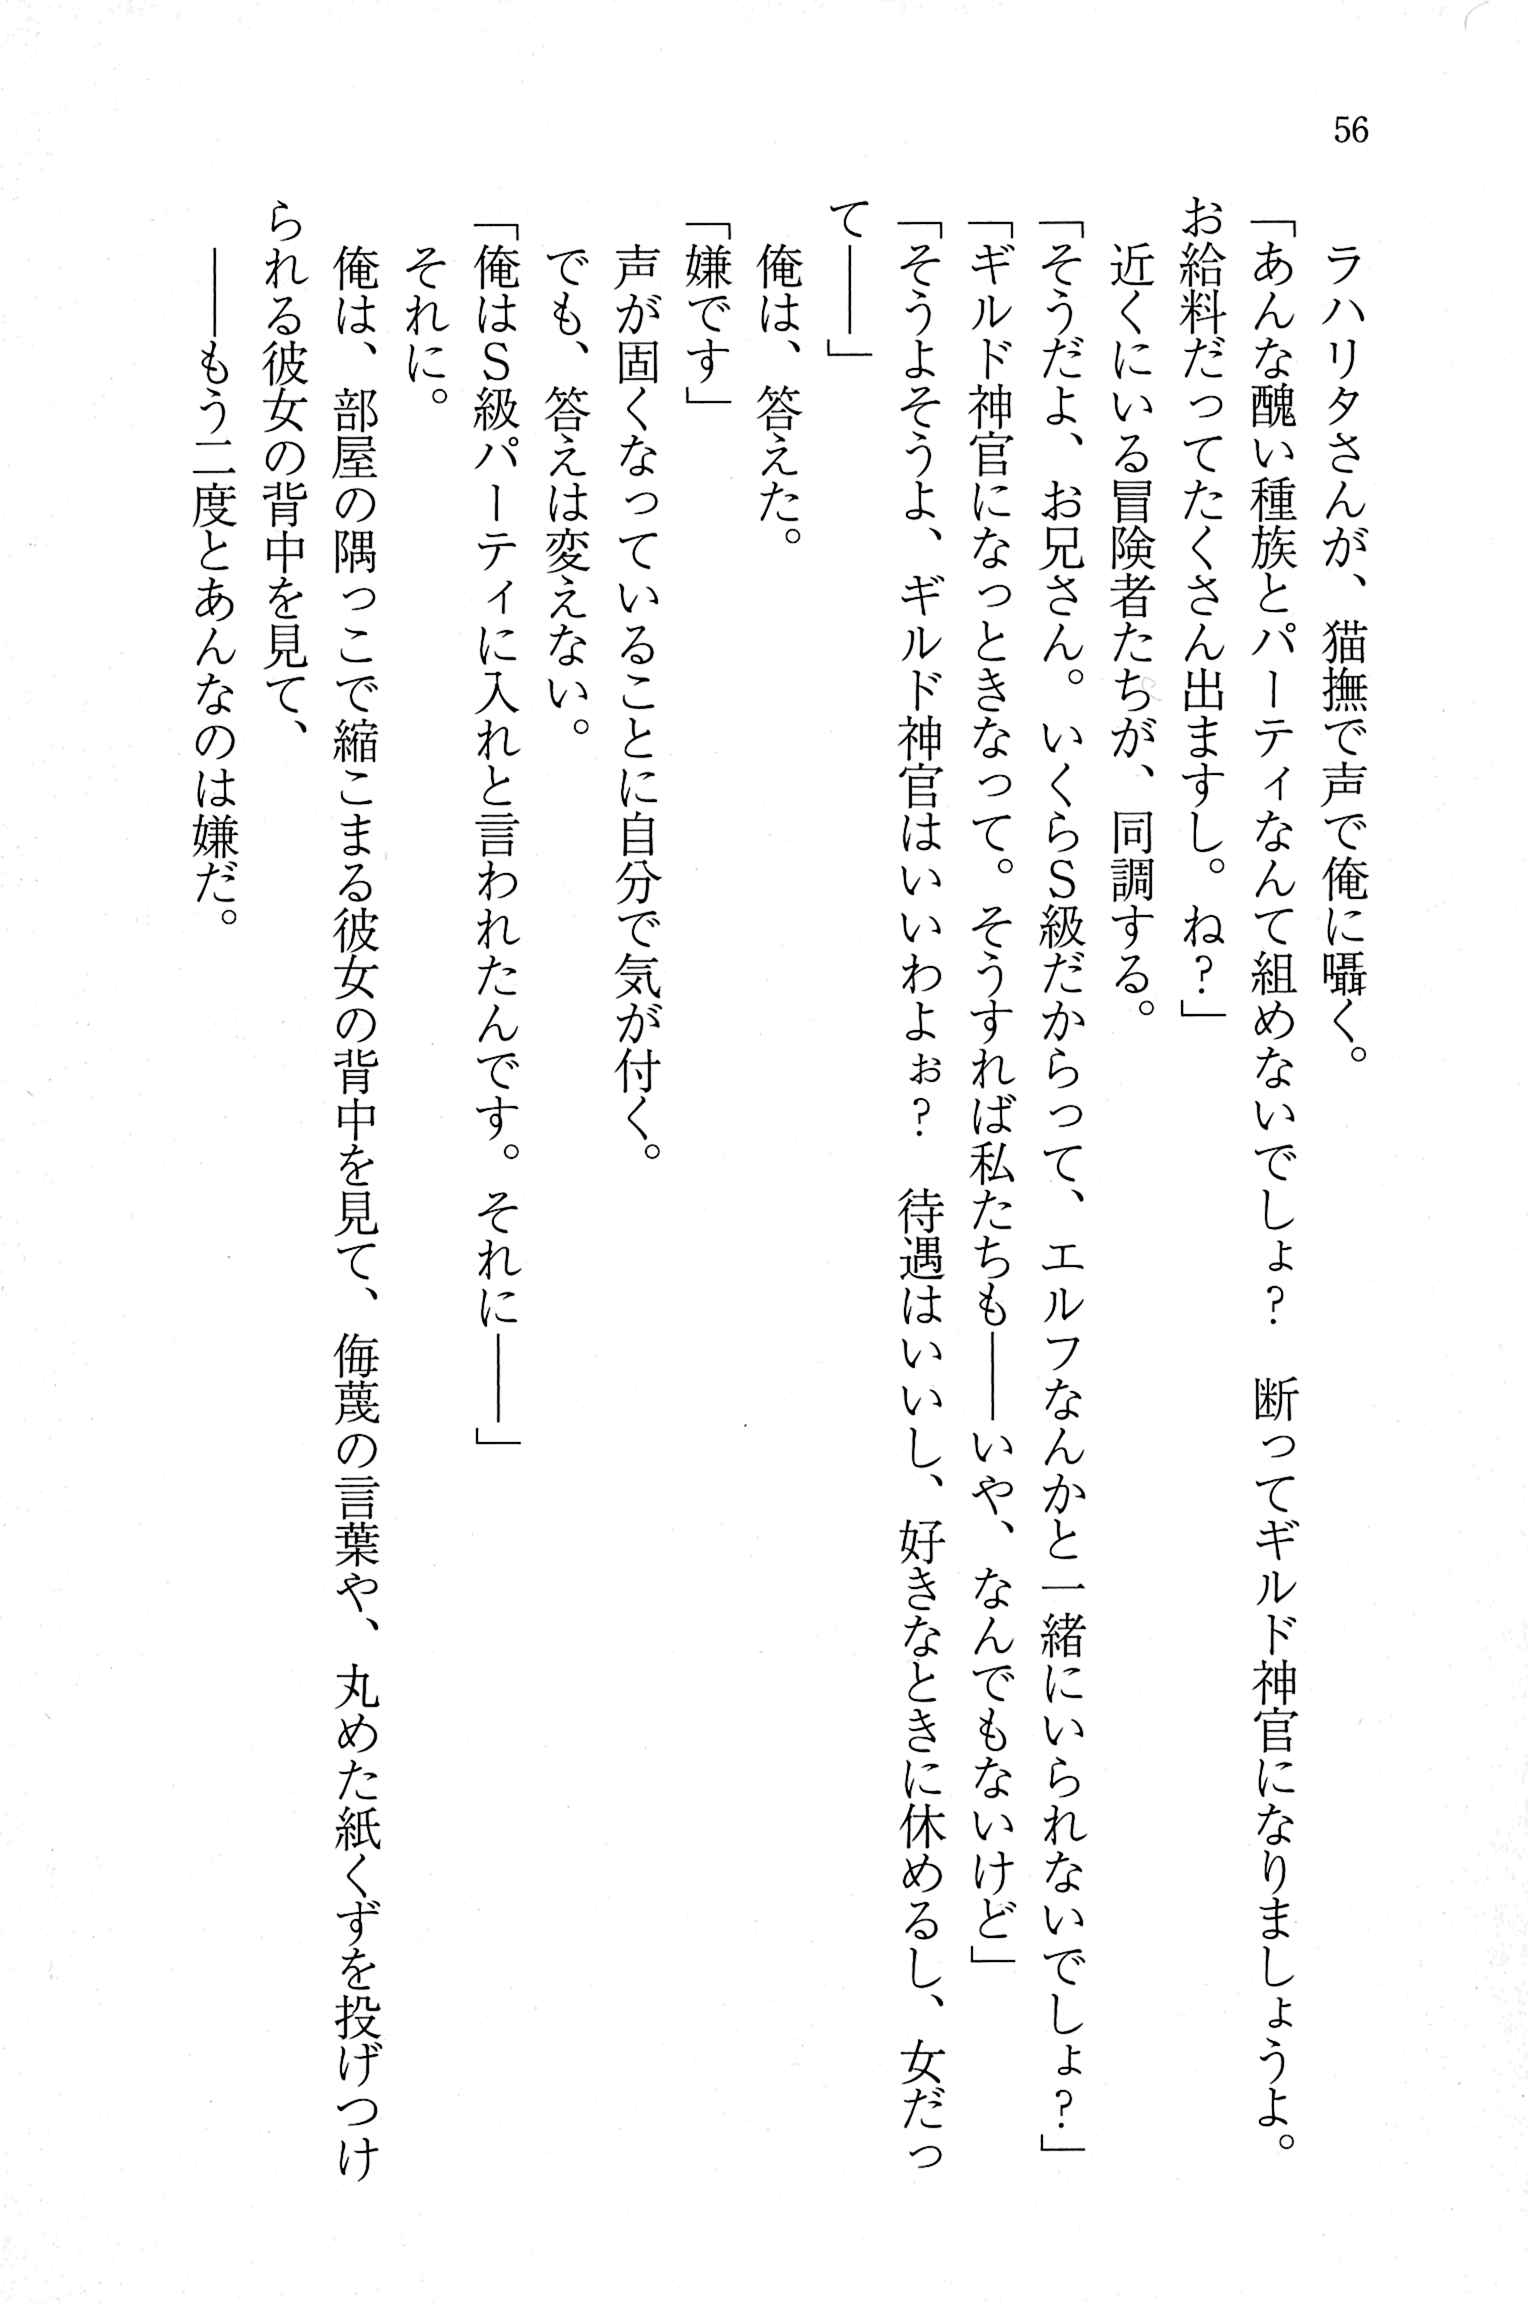 56
ラハリタさんが、猫撫で声で俺に囁く。
「あんな醜い種族とパーティなんて組めないでしょ？　断ってギルド神官になりましょうよ。
お給料だってたくさん出ますし。ね？」
近くにいる冒険者たちが、同調する。
「そうだよ、お兄さん。いくらＳ級だからって、エルフなんかと一緒にいられないでしょ？」
「ギルド神官になっときなって。そうすれば私たちも――いや、なんでもないけど」
「そうよそうよ、ギルド神官はいいわよぉ？　待遇はいいし、好きなときに休めるし、女だっ
て――」
俺は、答えた。
「嫌です」
声が固くなっていることに自分で気が付く。
でも、答えは変えない。
「俺はＳ級パーティに入れと言われたんです。それに――」
それに。
俺は、部屋の隅っこで縮こまる彼女の背中を見て、侮蔑の言葉や、丸めた紙くずを投げつけ
られる彼女の背中を見て、
――もう二度とあんなのは嫌だ。